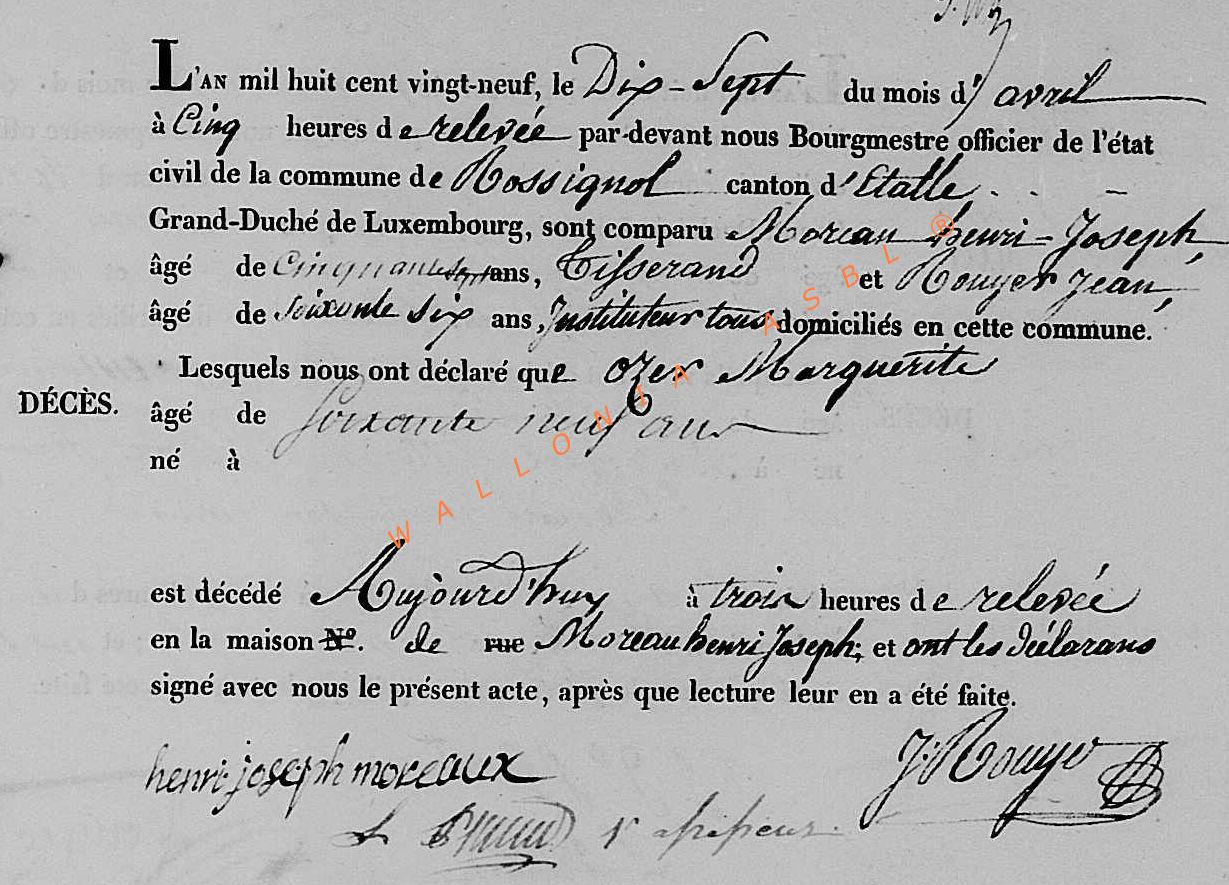 L'AN mil huit cent vingt-neuf, le Dix-Sept du mois d'avril
à Cinq heures de relevée par-devant nous Bourgmestre officier de l'état
civil de la commune de Rossignol canton d'Etalle,
Grand-Duché de Luxembourg, sont comparu Moreau henri-Joseph,
âgé de Cinquante sept ans, Tisserand et Rouyer Jean,
âgé de soixante six ans, Instituteur tous domiciliés en cette commune.
Lesquels nous ont déclaré que ozer Marguerite
DÉCÈS.
âgé de soixante neuf ans
né à
est décédé Aujourd'huy à trois heures de relevée
en la maison N°. de rue Moreau henri Joseph; et ont les déclarans
signé avec nous le présent acte, après que lecture leur en a été faite.
henri joseph moreaux J: Rouyer
WALLONIA ASBL ®